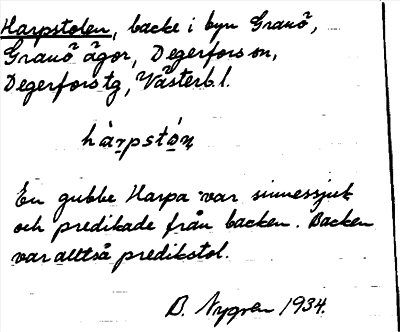 Harpstolen, backe i byn Granö,
Granö ägor, Degerfors sn,
Degerfors tg, Västerb. l.
hàrpstón
En gubbe Harpa var sinnessjuk
och predikade från backen. Backen
var alltså predikstol.
B. Nygren 1934.